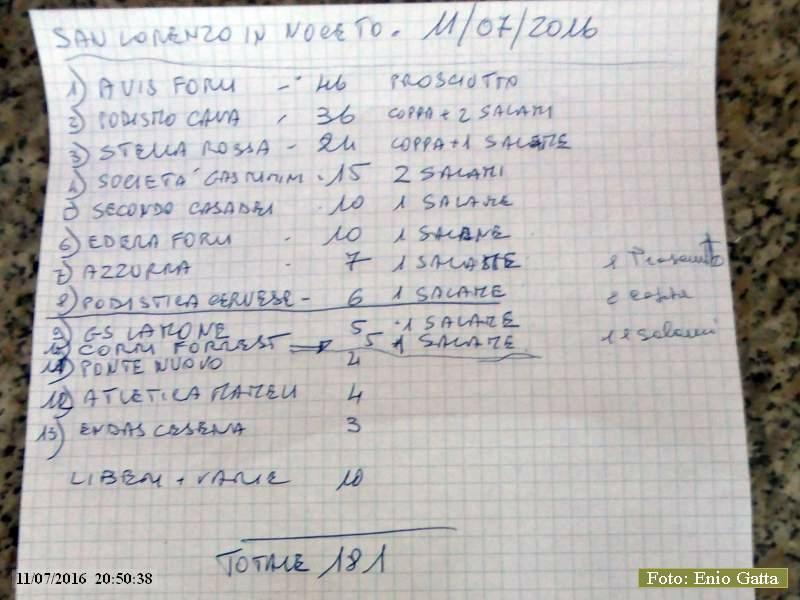 SAN LORENZO IN NOCETO. 11/07/2016
1) AVIS FORLI - 46 PROSCIUTTO
2) PODISTICO CAVA , 36 COPPA + 2 SALAMI
3) STELLA ROSSA - 24 COPPA + 1 SALAME
4) SOCIETA' GASTRONOM. 15 2 SALAMI
5 SECONDO CASADEI . 10 1 SALAME
6) EDERA FORLI . 10 1 SALAME
7) AZZURRA . 7 1 SALAME 1 Prosciutto
8) PODISTICA CERVESE - 6 1 SALAME 2 coppa
9) GS LAMONE 5 1 SALAME 11 Salami
10) CORRI FORREST 5 1 SALAME
11) PONTE NUOVO 4
12) ATLETICA MAMELI 4
13) ENDAS CESENA 3
LIBERI + VARIE 10
TOTALE 181
11/07/2016 20:50:38
Foto: Enio Gatta